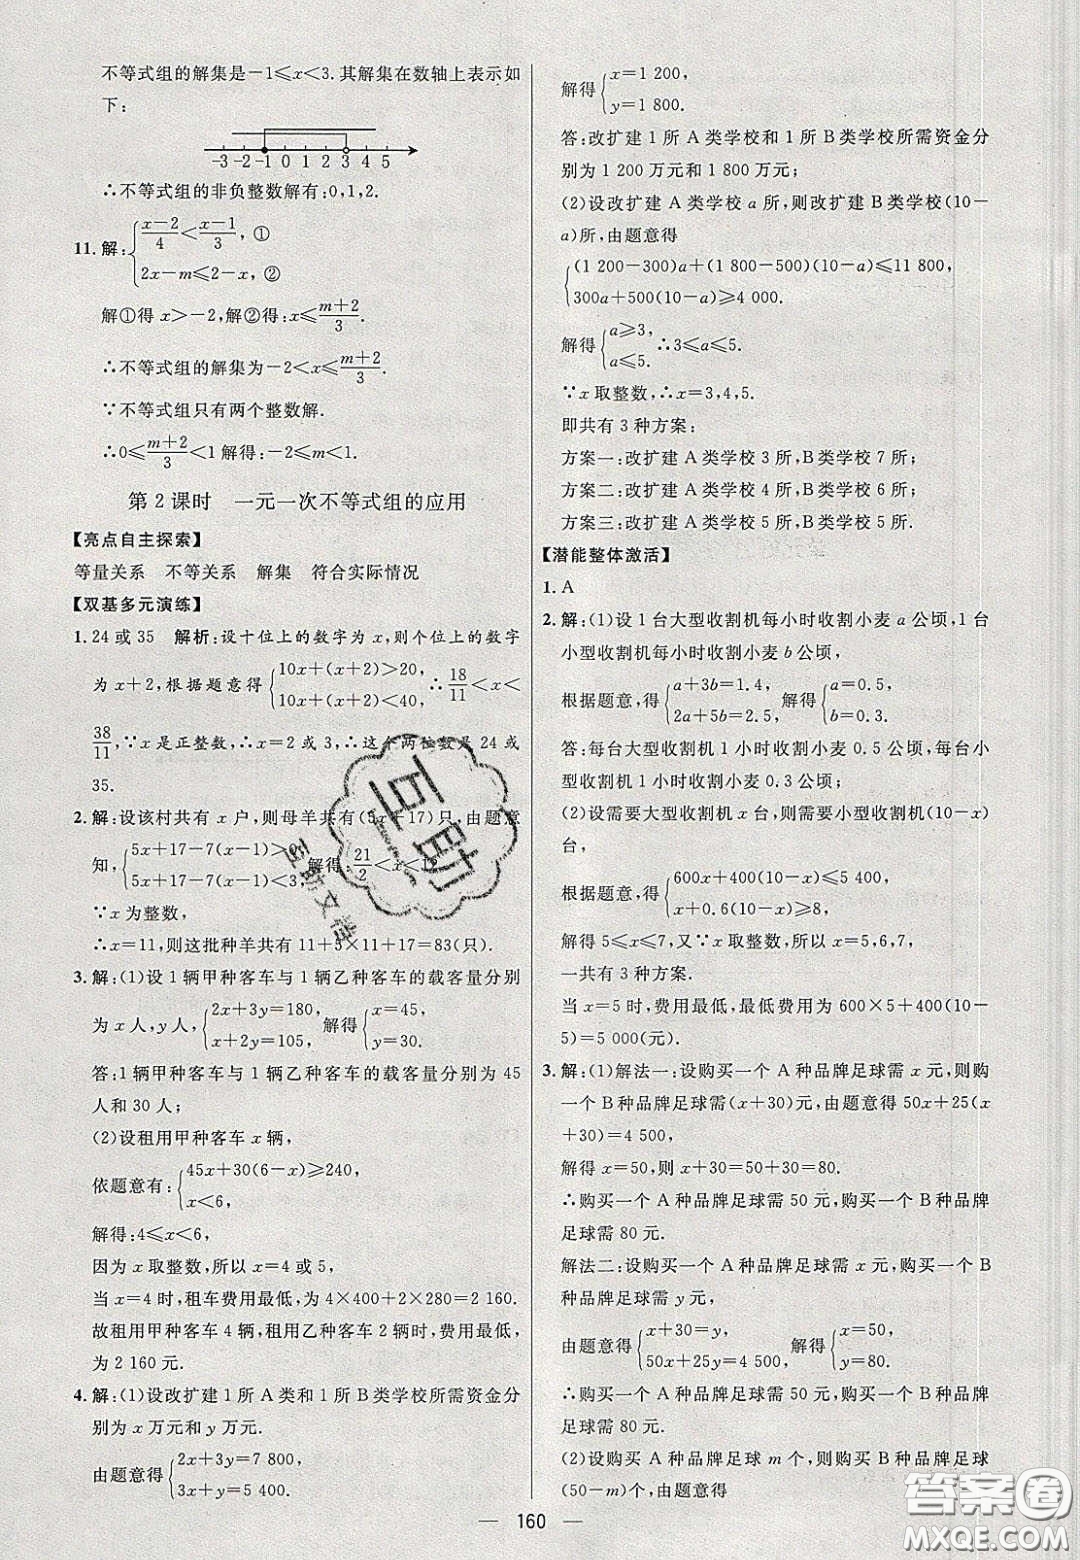 不等式组的解集是－1≤x＜3.其解集在数轴上表示如
下：
-3 -2 -1 0 1 2 3 4 5
∴不等式组的非负整数解有：0,1,2.
11. 解：{(x－2)/4＜(x－1)/3, ①
2x－m≤2－x, ②
解①得 x＞－2,解②得：x≤(m＋2)/3.
∴不等式组的解集为－2＜x≤(m＋2)/3.
∵不等式组只有两个整数解.
∴0≤(m＋2)/3＜1 解得：－2≤m＜1.
第 2 课时　一元一次不等式组的应用
【亮点自主探索】
等量关系　不等关系　解集　符合实际情况
【双基多元演练】
1. 24 或 35　解析：设十位上的数字为 x,则个位上的数字
为 x＋2,根据题意得{10x＋(x＋2)＞20, 10x＋(x＋2)＜40, ∴18/11＜x＜
38/11,∵x 是正整数,∴x＝2 或 3,∴这个两位数是 24 或
35.
2. 解：设该村共有 x 户,则母羊共有(5x＋17)只,由题意
知,{5x＋17－7(x－1)＞0, 5x＋17－7(x－1)＜3, 解得：21/2＜x＜12
∵x 为整数,
∴x＝11,则这批种羊共有 11＋5×11＋17＝83(只).
3. 解：(1)设 1 辆甲种客车与 1 辆乙种客车的载客量分别
为 x 人,y 人,{2x＋3y＝180, x＋2y＝105, 解得{x＝45, y＝30.
答：1 辆甲种客车与 1 辆乙种客车的载客量分别为 45
人和 30 人；
(2)设租用甲种客车 x 辆,
依题意有：{45x＋30(6－x)≥240, x＜6,
解得：4≤x＜6,
因为 x 取整数,所以 x＝4 或 5,
当 x＝4 时,租车费用最低,为 4×400＋2×280＝2 160.
故租用甲种客车 4 辆,租用乙种客车 2 辆时,费用最低,
为 2 160 元.
4. 解：(1)设改扩建 1 所 A 类和 1 所 B 类学校所需资金分
别为 x 万元和 y 万元.
由题意得{2x＋3y＝7 800, 3x＋y＝5 400.
解得{x＝1 200, y＝1 800.
答：改扩建 1 所 A 类学校和 1 所 B 类学校所需资金分
别为 1 200 万元和 1 800 万元；
(2)设改扩建 A 类学校 a 所,则改扩建 B 类学校(10－
a)所,由题意得
{(1 200－300)a＋(1 800－500)(10－a)≤11 800,
300a＋500(10－a)≥4 000.
解得{a≥3, a≤5. ∴3≤a≤5.
∵x 取整数,∴x＝3,4,5.
即共有 3 种方案：
方案一：改扩建 A 类学校 3 所,B 类学校 7 所；
方案二：改扩建 A 类学校 4 所,B 类学校 6 所；
方案三：改扩建 A 类学校 5 所,B 类学校 5 所.
【潜能整体激活】
1. A
2. 解：(1)设 1 台大型收割机每小时收割小麦 a 公顷,1 台
小型收割机每小时收割小麦 b 公顷,
根据题意,得{a＋3b＝1.4, 2a＋5b＝2.5, 解得{a＝0.5, b＝0.3.
答：每台大型收割机 1 小时收割小麦 0.5 公顷,每台小
型收割机 1 小时收割小麦 0.3 公顷；
(2)设需要大型收割机 x 台,则需要小型收割机(10－x)
台,
根据题意得：{600x＋400(10－x)≤5 400, x＋0.6(10－x)≥8,
解得 5≤x≤7,又∵x 取整数,所以 x＝5,6,7,
一共有 3 种方案.
当 x＝5 时,费用最低,最低费用为 600×5＋400(10－
5)＝5 000(元).
3. 解：(1)解法一：设购买一个 A 种品牌足球需 x 元,则购
买一个 B 种品牌足球需(x＋30)元,由题意得 50x＋25(x
＋30)＝4 500,
解得 x＝50,则 x＋30＝50＋30＝80.
∴购买一个 A 种品牌足球需 50 元,购买一个 B 种品牌
足球需 80 元.
解法二：设购买一个 A 种品牌足球需 x 元,购买一个 B
种品牌足球需 y 元,
由题意得{x＋30＝y, 50x＋25y＝4 500, 解得{x＝50, y＝80.
∴购买一个 A 种品牌足球需 50 元,购买一个 B 种品牌
足球需 80 元.
(2)设购买 A 种品牌足球 m 个,则购买 B 种品牌足球
(50－m)个,由题意得
— 160 —
互助
互助文档
答案圈
MXQE.COM